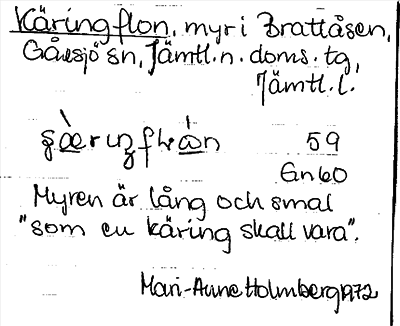 Käringflon, myr i Brattåsen,
Gåxsjö sn, Jämtl. n. doms. tg,
Jämtl. l.
59
En 60
Myren är lång och smal
"som en käring skall vara".
Mari-Anne Holmberg 1972